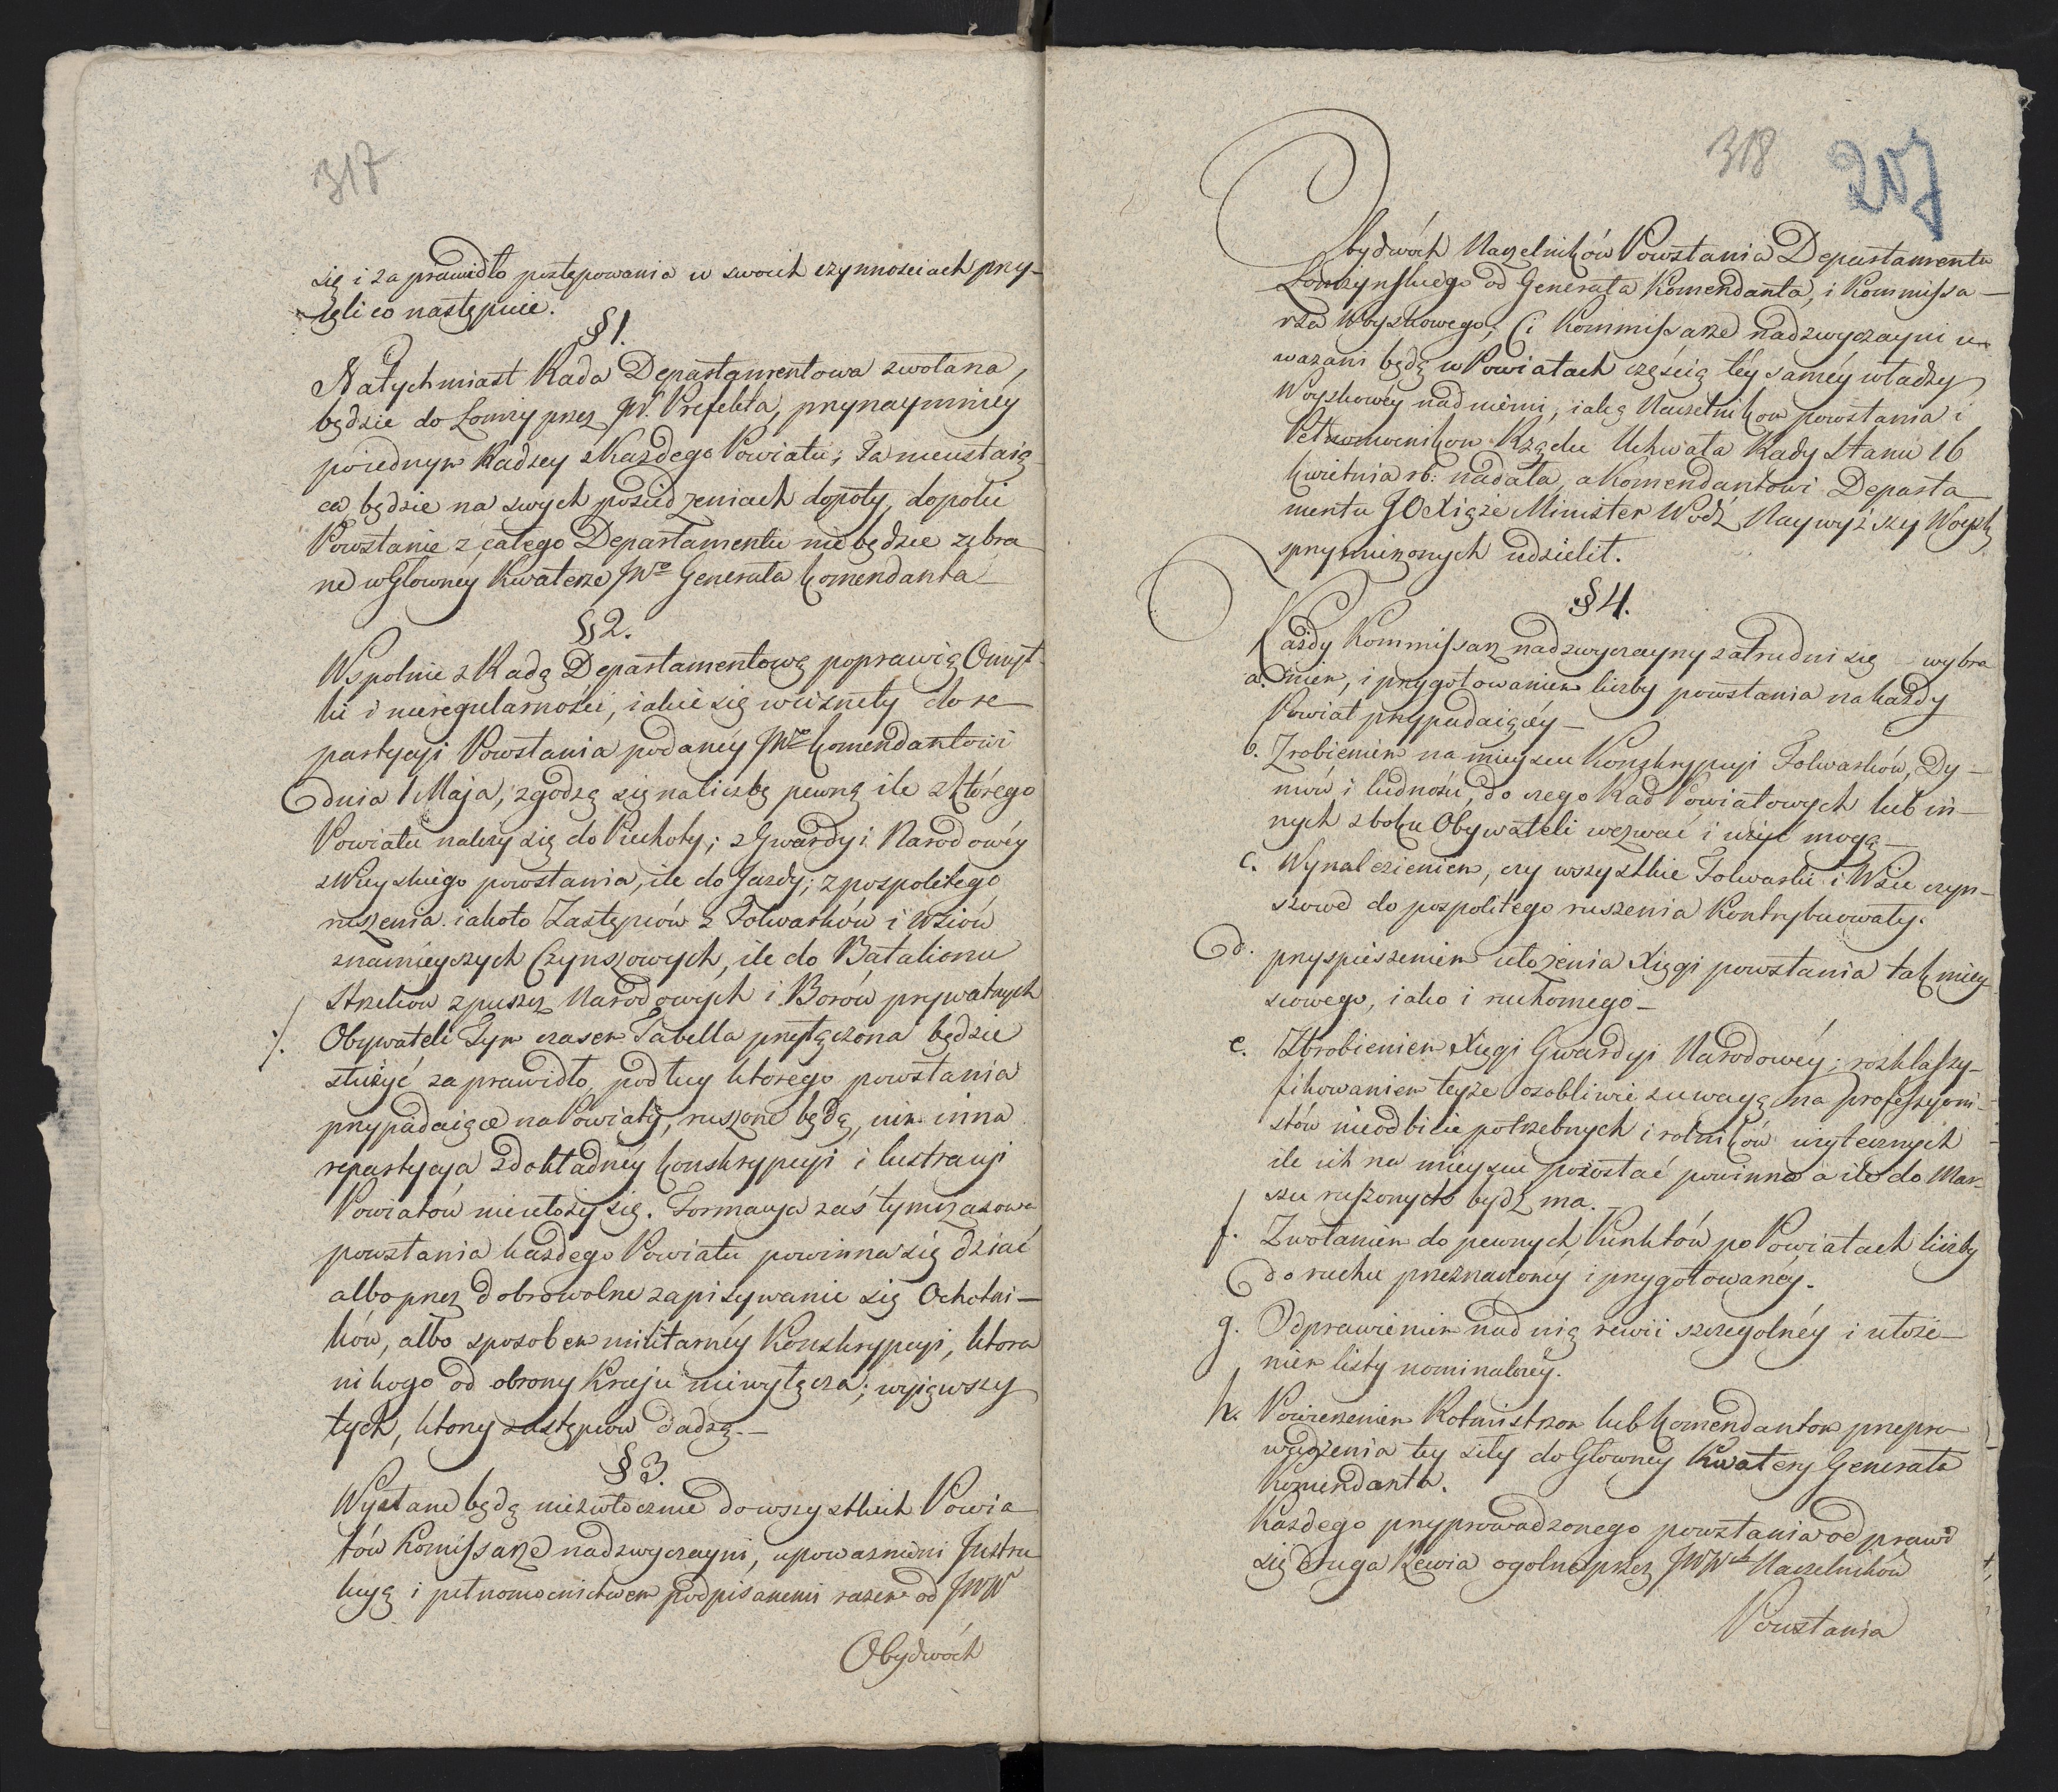 317
się i za prawidło postępowania w swoich czynnościach przy-
ięli co następuie.
§ 1.
Natychmiast Rada Departamentowa zwołana,
będzie do Łomży przez JW. Prefekta, przynaymniéy
po iednym Radzcy z Każdego Powiatu; Ta nieustaią-
ca będzie na swych posiedzeniach dopoty, dopoki
Powstanie z całego Departamentu nie będzie zebra
ne w Głowney Kwaterze JWo Generała Komendanta
§ 2.
Wspolnie z Radą Departamentową poprawią Omył-
ki i nieregularności, iakie się wcisnęły do re-
partycyi Powstania podanéy JWo Komendantowi
dnia 1 Maja, zgodzą się na liczbę pewną ile z którego
Powiatu należy się do Piechoty; z Gwardyi Narodowéy
z Wieyskiego powstania, ile do Jazdy; z pospolitego
ruszenia iakoto Zastępców z Folwarków i Wsiów
znamieyszych Czynszowych, ile do Batalionu
Strzelców z puszcz Narodowych i Borów prywatnych
Obywateli Tym czasem Tabella przyłączona będzie
służyć za prawidło, podług ktorego powstania
przypadaiące na Powiaty, ruszone będą, nim inna
repartycya z dokładnéy konskrypcyi i lustracyi
Powiatów nieułoży się. Formacya zaś tymczasowa
powstania każdego Powiatu powinna się dziać
albo przez dobrowolne zapisywanie się Ochotni-
ków, albo sposobem militarnéy Konskrypcyi, ktora
nikogo od obrony Kraju niewyłącza; wyiąwszy
tych, ktorzy zastępców dadzą.—
§ 3.
Wysłane będą niezwłocznie do wszystkich Powia
tów Komissarze nadzwyczayni, upoważnieni Instru
kcyą i pełnomocnictwem podpisanemi razem od JWW
Obydwóch
318
207
Obydwóch Naczelników Powstania Departamentu
Łomżyńskiego od Generała Komendanta, i Kommissa-
rza Woyskowego; Ci Kommissarze nadzwyczayni u-
ważani będą w Powiatach częścią téy saméy władzy
Woyskowéy nad niemi, iaką Naczelnikom powstania i
Pełnomocnikom Rządu Uchwała Rady Stanu 16
kwietnia rb: nadała, a Komendantowi Departa
mentu JO Xiąże Minister Wódz Naywyższy Woysk
sprzymierzonych udzielił.
§ 4.
Każdy Kommissarz nadzwyczayny zatrudni się wybra
a. niem, i przygotowaniem liczby powstania na każdy
Powiat przypadaiącéy—
b. Zrobieniem na mieyscu Konskrypcyi Folwarków, Dy-
mów i ludności, do czego Rad Powiatowych lub in-
nych z boku Obywateli wezwać i użyć mogą—
c. Wynalezieniem, czy wszystkie Folwarki i Wsie czyn-
szowe do pospolitego ruszenia Kontrybuowały.
d. przyspieszeniem ułożenia Xięgi powstania tak miey
scowego, iako i ruchomego—
e. Zbrobieniem Xięgi Gwardyi Narodowéy; rozklassy-
fikowaniem teyże osobliwie z uwagą na professyoni-
stów nieodbicie potrzebnych i rolników użytecznych
ile ich na mieyscu pozostać powinno a ile do Mar-
szu ruszonych bydź ma.
f. Zwołaniem do pewnych Punktów po Powiatach liczby
do ruchu przeznaczonéy i przygotowanéy.
g. Odprawieniem nad nią rewii szczegolnéy i ułoże-
niem listy nominalnéy.
h. Powierzeniem Rotmistrzom lub Komendantom przepro
wadzenia tey siły do Głowney Kwatery Generała
Komendanta.
Każdego przyprowadzonego powstania odprawi
się druga Rewia ogolna przez JWWch Naczelników
Powstania